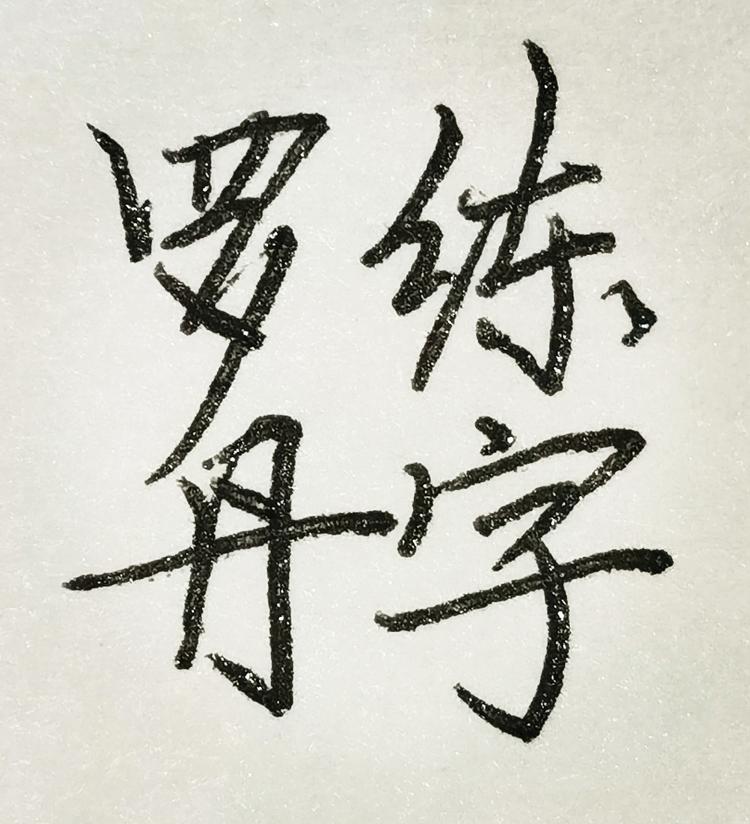 练字
罗丹